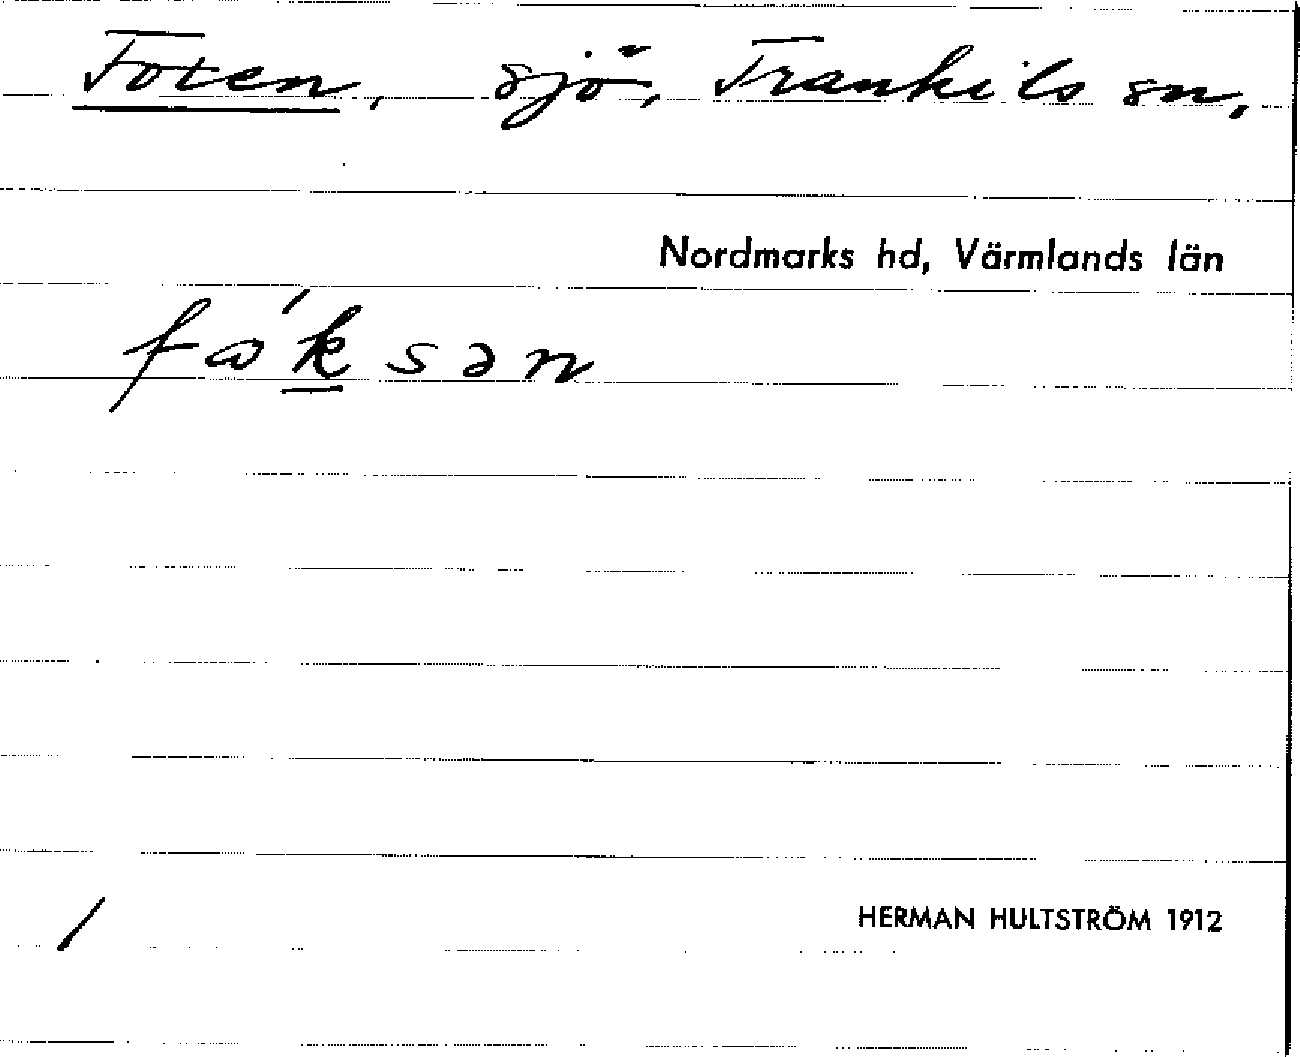 Foxen, sjö, Trankils sn,
Nordmarks hd, Värmlands län
fω´ksən
/ HERMAN HULTSTRÖM 1912